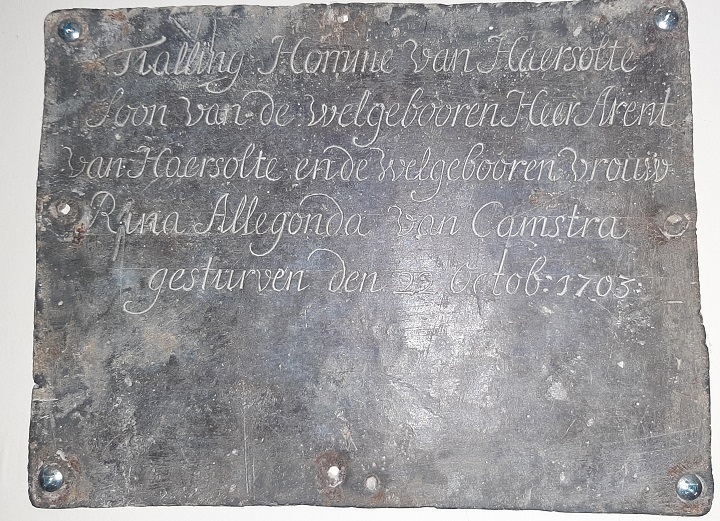 Tialling Homme van Haersolte
Soon van de welgebooren Heer Arent
van Haersolte en de welgebooren vrouw
Rina Allegonda van Camstra
gesturven den 22 Octob: 1703: